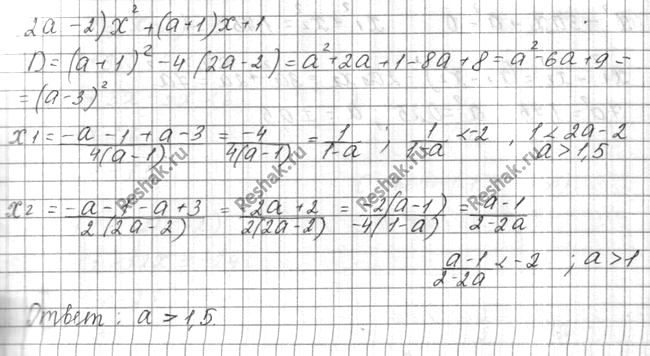 2a - 2)x² + (a+1)x + 1
D = (a+1)² - 4(2a-2) = a² + 2a + 1 - 8a + 8 = a² - 6a + 9 =
= (a-3)²
x1 = -a - 1 + a - 3 / 4(a-1) = -4 / 4(a-1) = 1 / 1-a ; 1 / 1-a < -2 , 1 < 2a - 2 a > 1,5
x2 = -a - 1 - a + 3 / 2(2a-2) = -2a + 2 / 2(2a-2) = -2(a-1) / -4(1-a) = a-1 / 2-2a
a-1 / 2-2a < -2 ; a > 1
Ответ: a > 1,5.
Reshak.ru
Reshak.ru
Reshak.ru
Reshak.ru